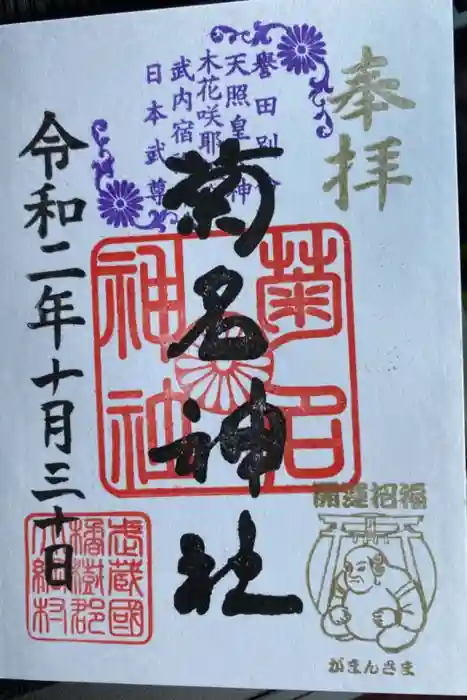 奉拝
誉田別命
天照皇大神
木花咲耶姫命
武内宿禰命
日本武尊
菊名神社
菊名
神社
令和二年十月三十日
武蔵國
橘樹郡
大綱村
開運招福
がまんさま